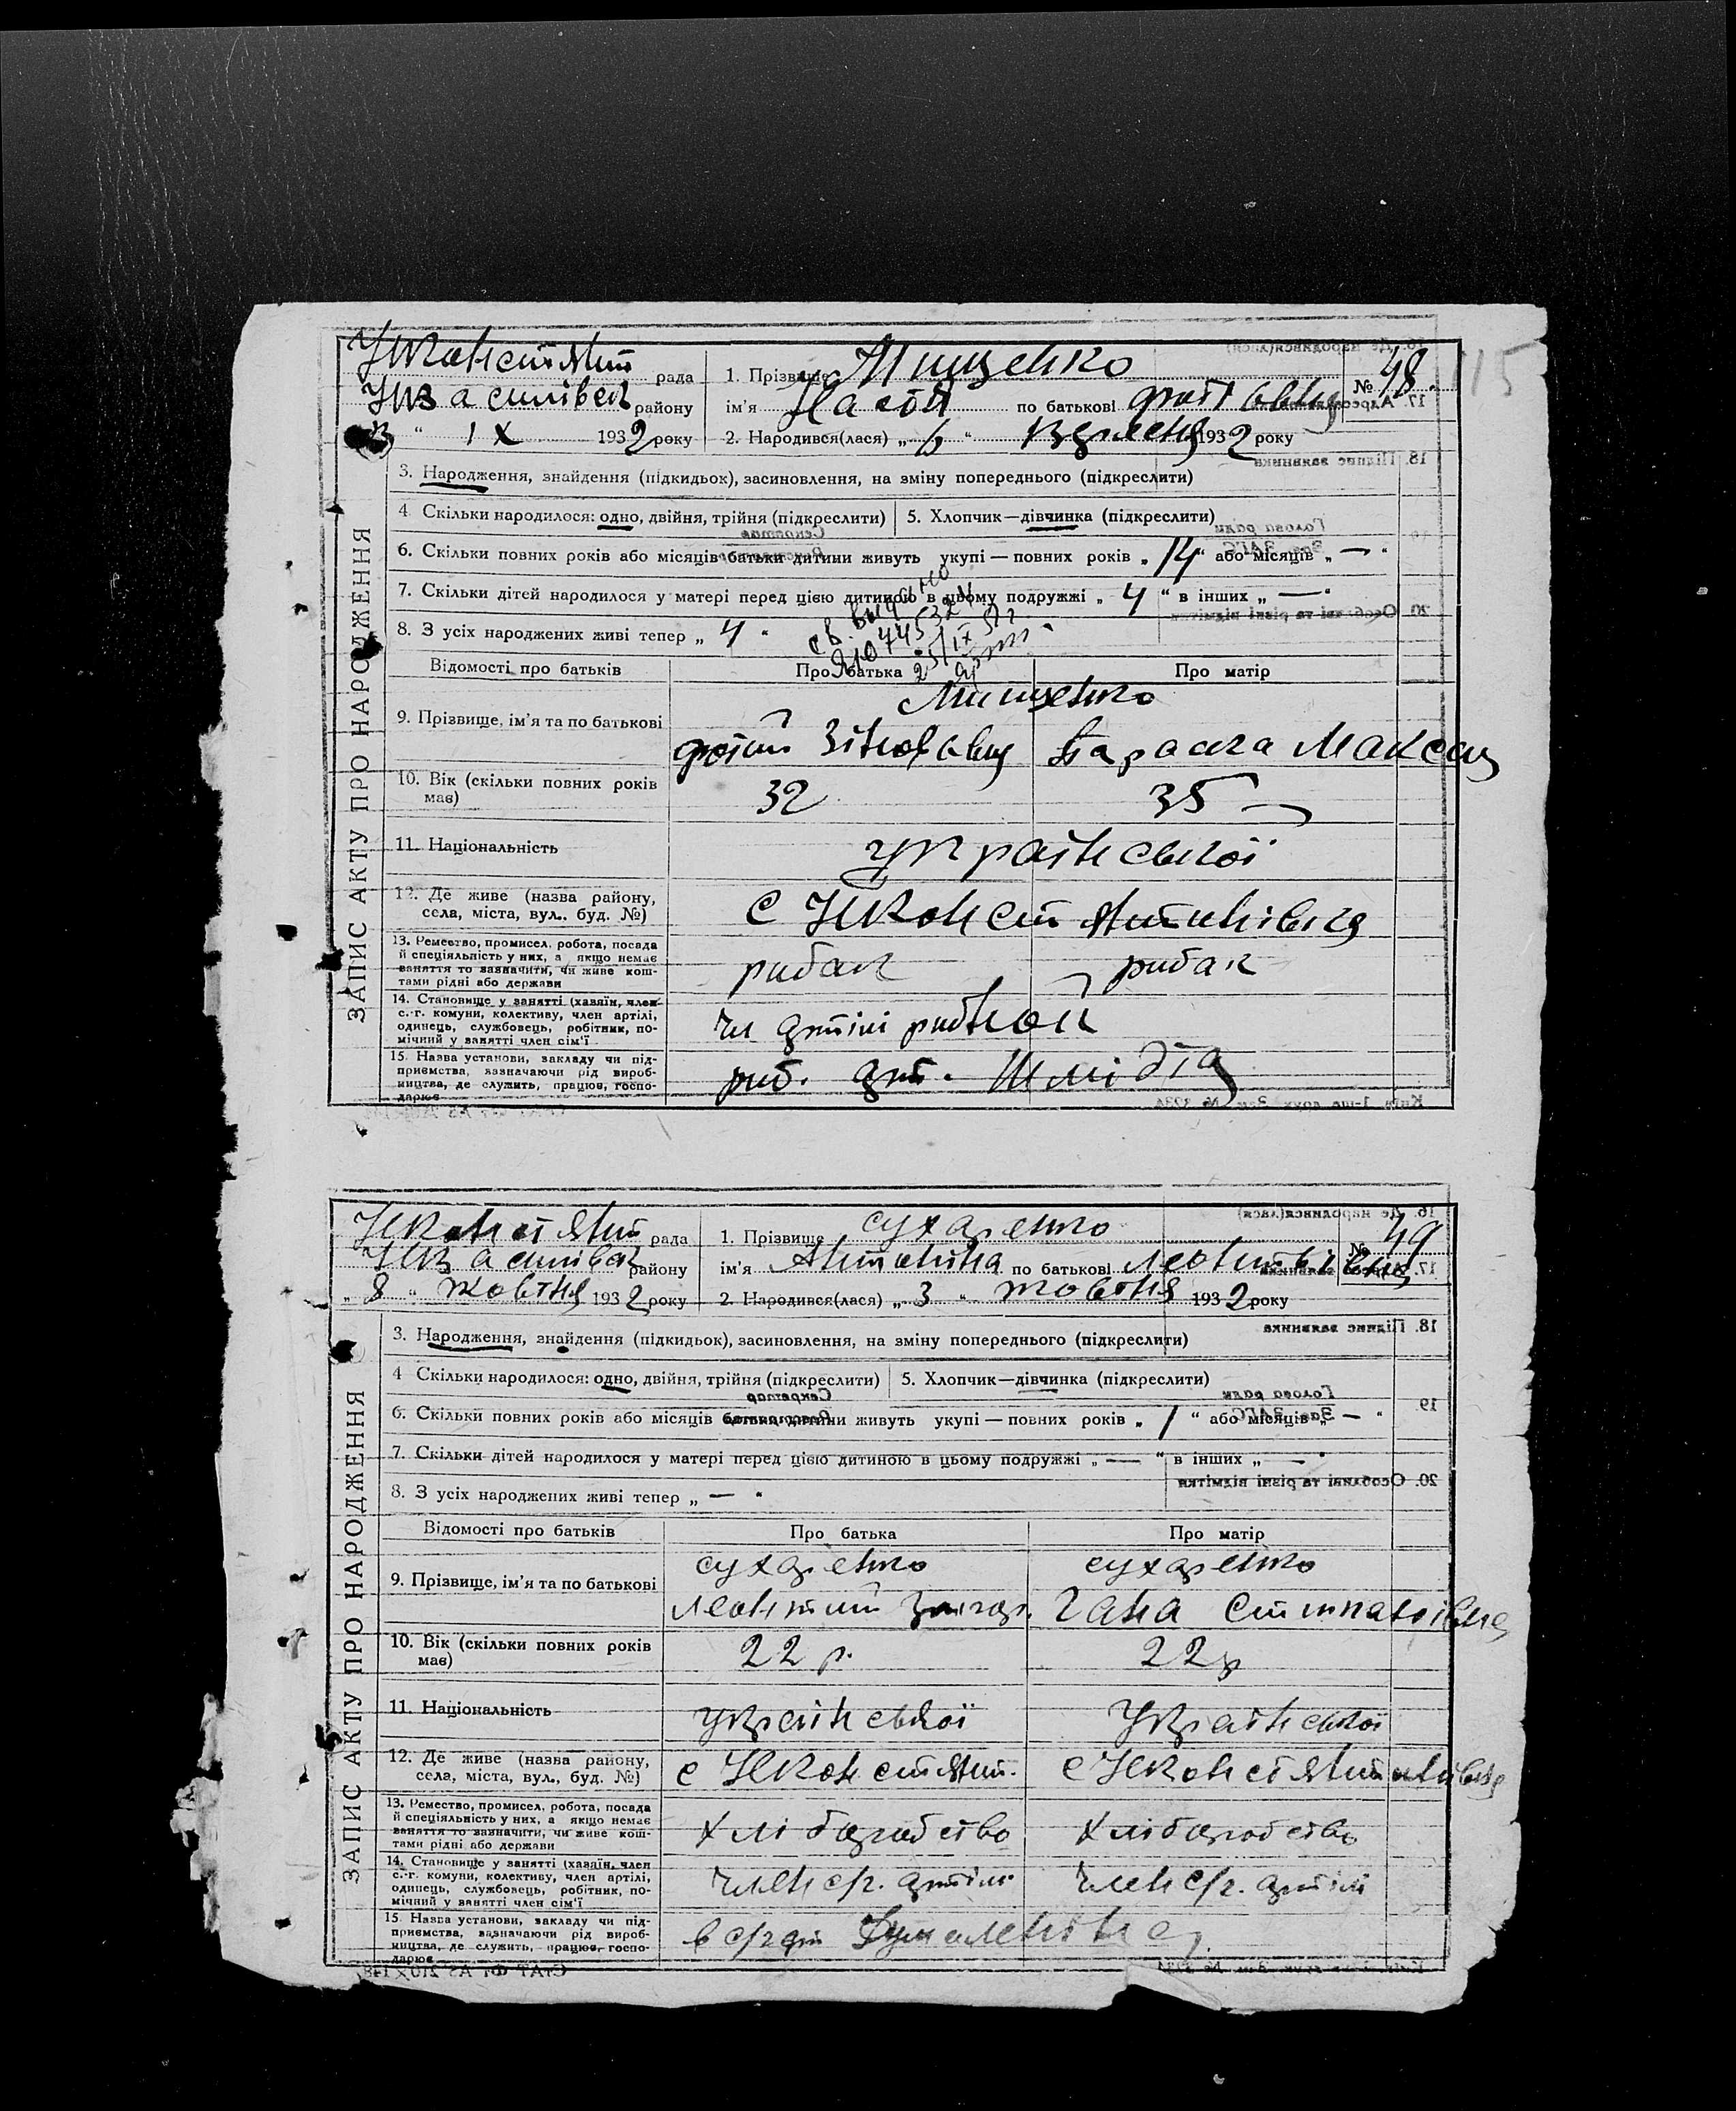 115
Нконстянт рада
Нвасилівськ району
" ІХ 1932 року
1. Прізвище Мищенко
№ 48.
ім'я Настя по батькові
2. Народився(лася) „ 6 " Вересня 1932 року
ЗАПИС АКТУ ПРО НАРОДЖЕННЯ
3. Народження, знайдення (підкидьок), засиновлення, на зміну попереднього (підкреслити)
4 Скільки народилося: одно, двійня, трійня (підкреслити)
5. Хлопчик—дівчинка (підкреслити)
6. Скільки повних років або місяців батьки дитини живуть укупі — повних років „ 14 " або місяців „ — "
7. Скільки дітей народилося у матері перед цією дитиною в цьому подружжі „ 4 " в інших „ — "
8. З усіх народжених живі тепер „ 4 "
св. выдано
25/IX
Відомості про батьків
Про батька
Про матір
9. Прізвище, ім'я та по батькові
Мищенко
Параска Максим
10. Вік (скільки повних років має)
32
35
11. Національність
української
12. Де живе (назва району, села, міста, вул., буд. №)
с Нконстянтинівка
13. Ремество, промисел, робота, посада й спеціяльність у них, а якщо немає заняття то зазначити, чи живе коштами рідні або держави
рибак
рибак
14. Становище у занятті (хазяїн, член с.-г. комуни, колективу, член артілі, одинець, службовець, робітник, помічний у занятті член сім'ї
чл артілі рибной
15. Назва установи, закладу чи підприємства, зазначаючи рід виробництва, де служить, працює, господарює
риб. арт. Шмідта
Нконстянт рада
Нвасилівськ району
„ 8 " жовтня 1932 року
1. Прізвище Сухаренко
№ 49
ім'я Антоніна по батькові Леонтіївна
2. Народився(лася) „ 3 " жовтня 1932 року
ЗАПИС АКТУ ПРО НАРОДЖЕННЯ
3. Народження, знайдення (підкидьок), засиновлення, на зміну попереднього (підкреслити)
4 Скільки народилося: одно, двійня, трійня (підкреслити)
5. Хлопчик—дівчинка (підкреслити)
6. Скільки повних років або місяців батьки дитини живуть укупі — повних років „ 1 " або місяців „ — "
7. Скільки дітей народилося у матері перед цією дитиною в цьому подружжі „ — " в інших „ — "
8. З усіх народжених живі тепер „ — "
Відомості про батьків
Про батька
Про матір
9. Прізвище, ім'я та по батькові
Сухаренко
Сухаренко
Леонтий
Гана
10. Вік (скільки повних років має)
22 р.
22 р
11. Національність
української
Української
12. Де живе (назва району, села, міста, вул., буд. №)
с Нконстянт.
с Нконстянтинівка
13. Ремество, промисел, робота, посада й спеціяльність у них, а якщо немає заняття то зазначити, чи живе коштами рідні або держави
хліборобство
хліборобство
14. Становище у занятті (хазяїн, член с.-г. комуни, колективу, член артілі, одинець, службовець, робітник, помічний у занятті член сім'ї
член с/г. артіли
член с/г. артіли
15. Назва установи, закладу чи підприємства, зазначаючи рід виробництва, де служить, працює, господарює
в с/г арт